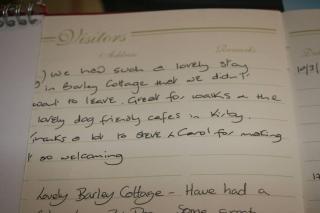 Visitors
Address Remarks Da
) We had such a lovely stay 10/3/
in Barley Cottage that we didn't
want to leave. Great for walks & the
lovely dog friendly cafes in Kirby.
Thanks a lot to Steve & Carol for making
it so welcoming
Lovely Barley Cottage - Have had a